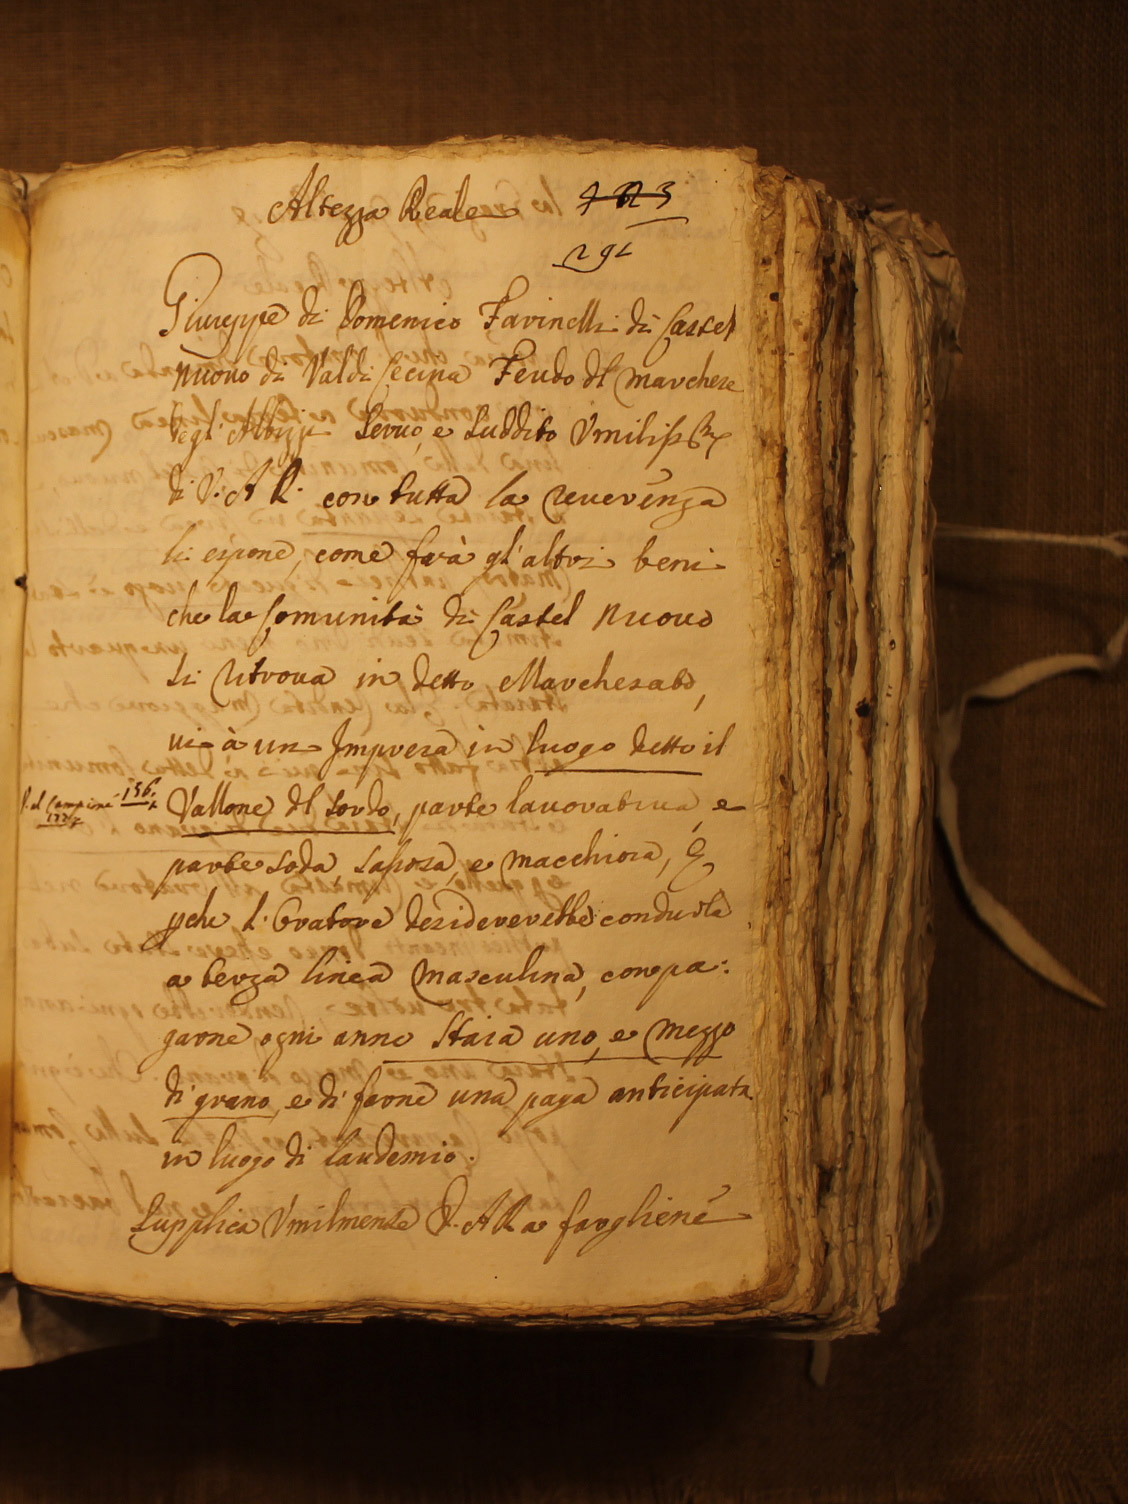 Altezza Reale
291
Giuseppe di Domenico Farinelli di Castel
nuouo di Valdi Cecina Feudo dl Marchese
degl'Albizzi Seruo, e Suddito Vmiliss.mo
di V. A R. con tutta la reuerenza
li espone, come frà gl'altri beni
che la Comunità di Castel Nuouo
si ritroua in detto Marchesato,
ui à un Impresa in luogo detto il
156.
Vallone dl Sordo, parte lauoratiua, e
parte soda, sassosa, e macchiosa, e
pche l'Oratore desidererebbe condurla
a terza linea Masculina, con pa:
garne ogni anno Staia uno, e mezzo
di grano, e di farne una paga anticipata
in luogo di laudemio.
Supplica Vmilmente V. A R a fargliene